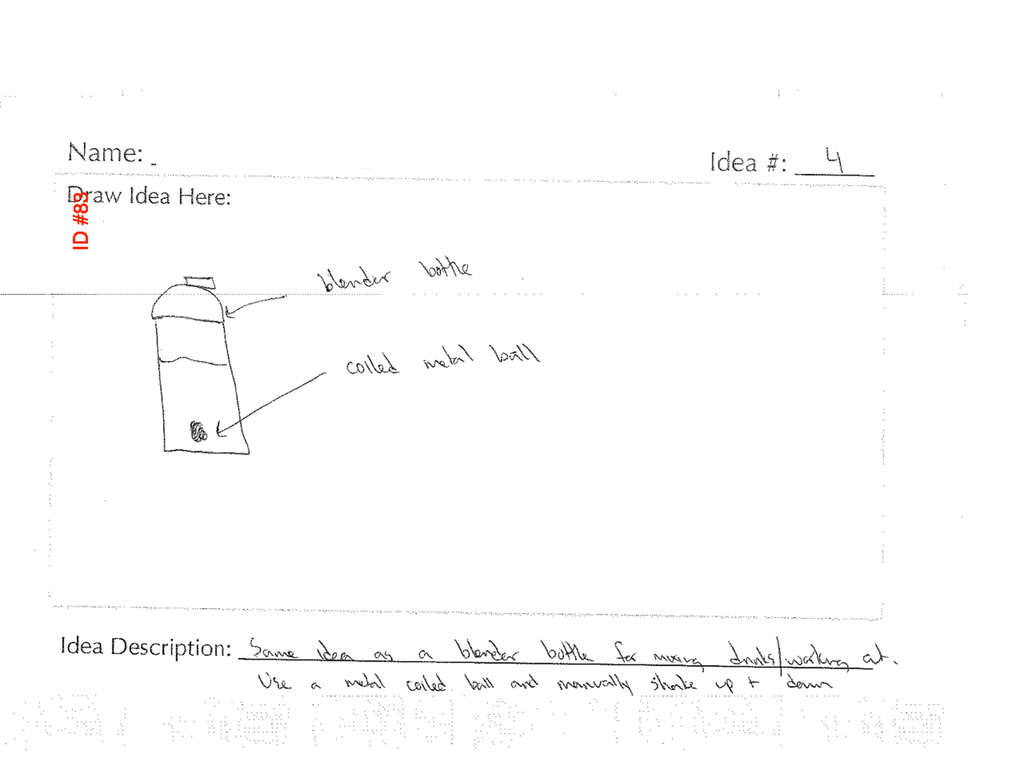 Name:
Idea #: 4
Draw Idea Here:
ID #83
blender bottle
coiled metal ball
Idea Description: Same idea as a blender bottle for mixing drinks/working out.
Use a metal coiled ball and manually shake up + down